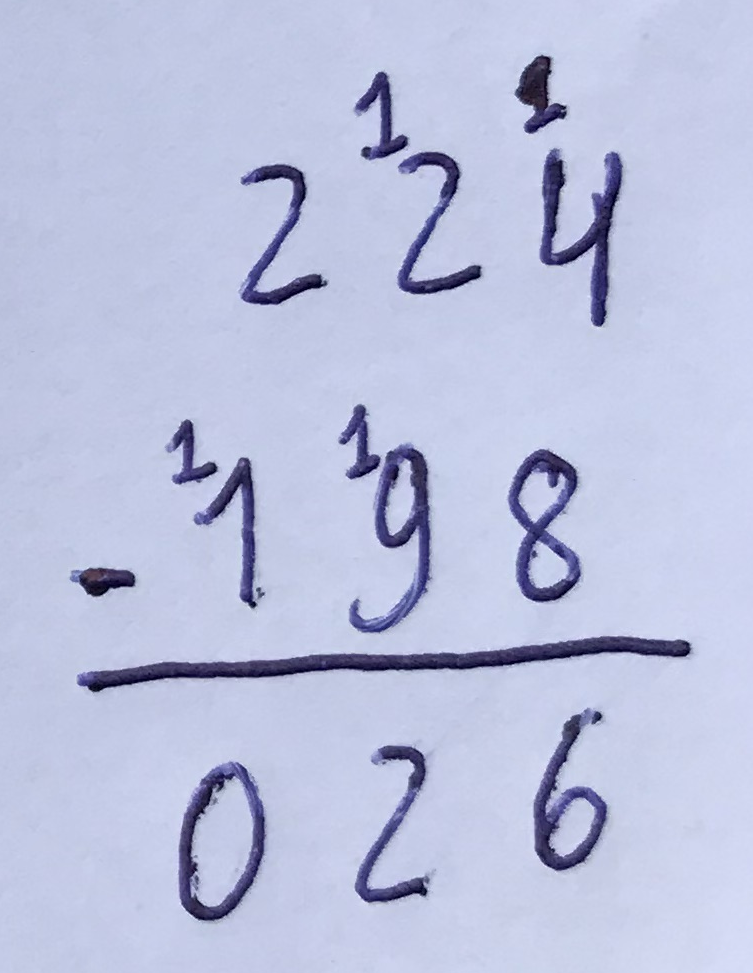 1 1
2 2 4
1 1
- 1 9 8
0 2 6